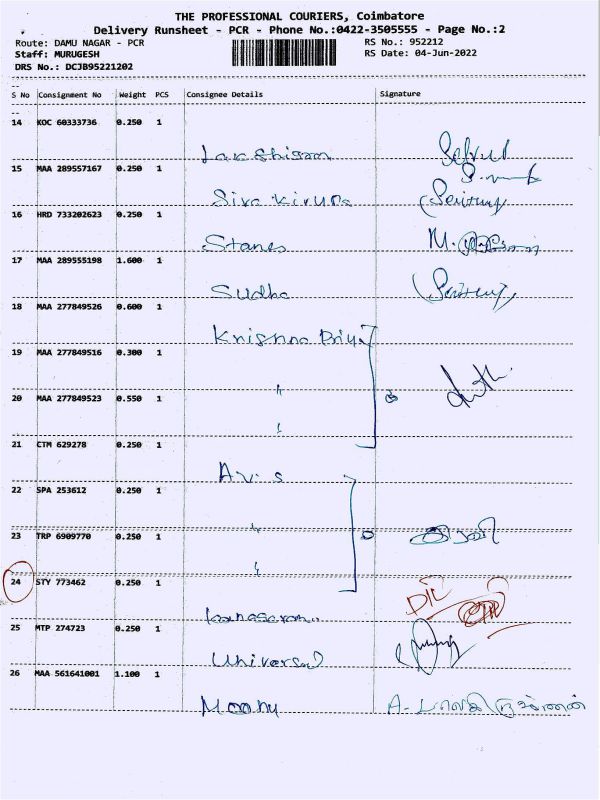 THE PROFESSIONAL COURIERS, Coimbatore
Delivery Runsheet - PCR - Phone No.:0422-3505555 - Page No.:2
Route: DAMU NAGAR - PCR RS No.: 952212
Staff: MURUGESH RS Date: 04-Jun-2022
DRS No.: DCJB95221202
S No Consignment No Weight PCS Consignee Details Signature
14 KOC 60333736 0.250 1
15 MAA 289557167 0.250 1
Siva Kirupa
16 HRD 733202623 0.250 1
Stanes M.
17 MAA 289555198 1.600 1
Sudha
18 MAA 277849526 0.600 1
Krishna Priya
19 MAA 277849516 0.300 1
"
20 MAA 277849523 0.550 1
"
21 CTM 629278 0.250 1
A.V.S
22 SPA 253612 0.250 1
"
23 TRP 6909770 0.250 1
"
24 STY 773462 0.250 1
D/L
25 MTP 274723 0.250 1
Universal
26 MAA 561641001 1.100 1